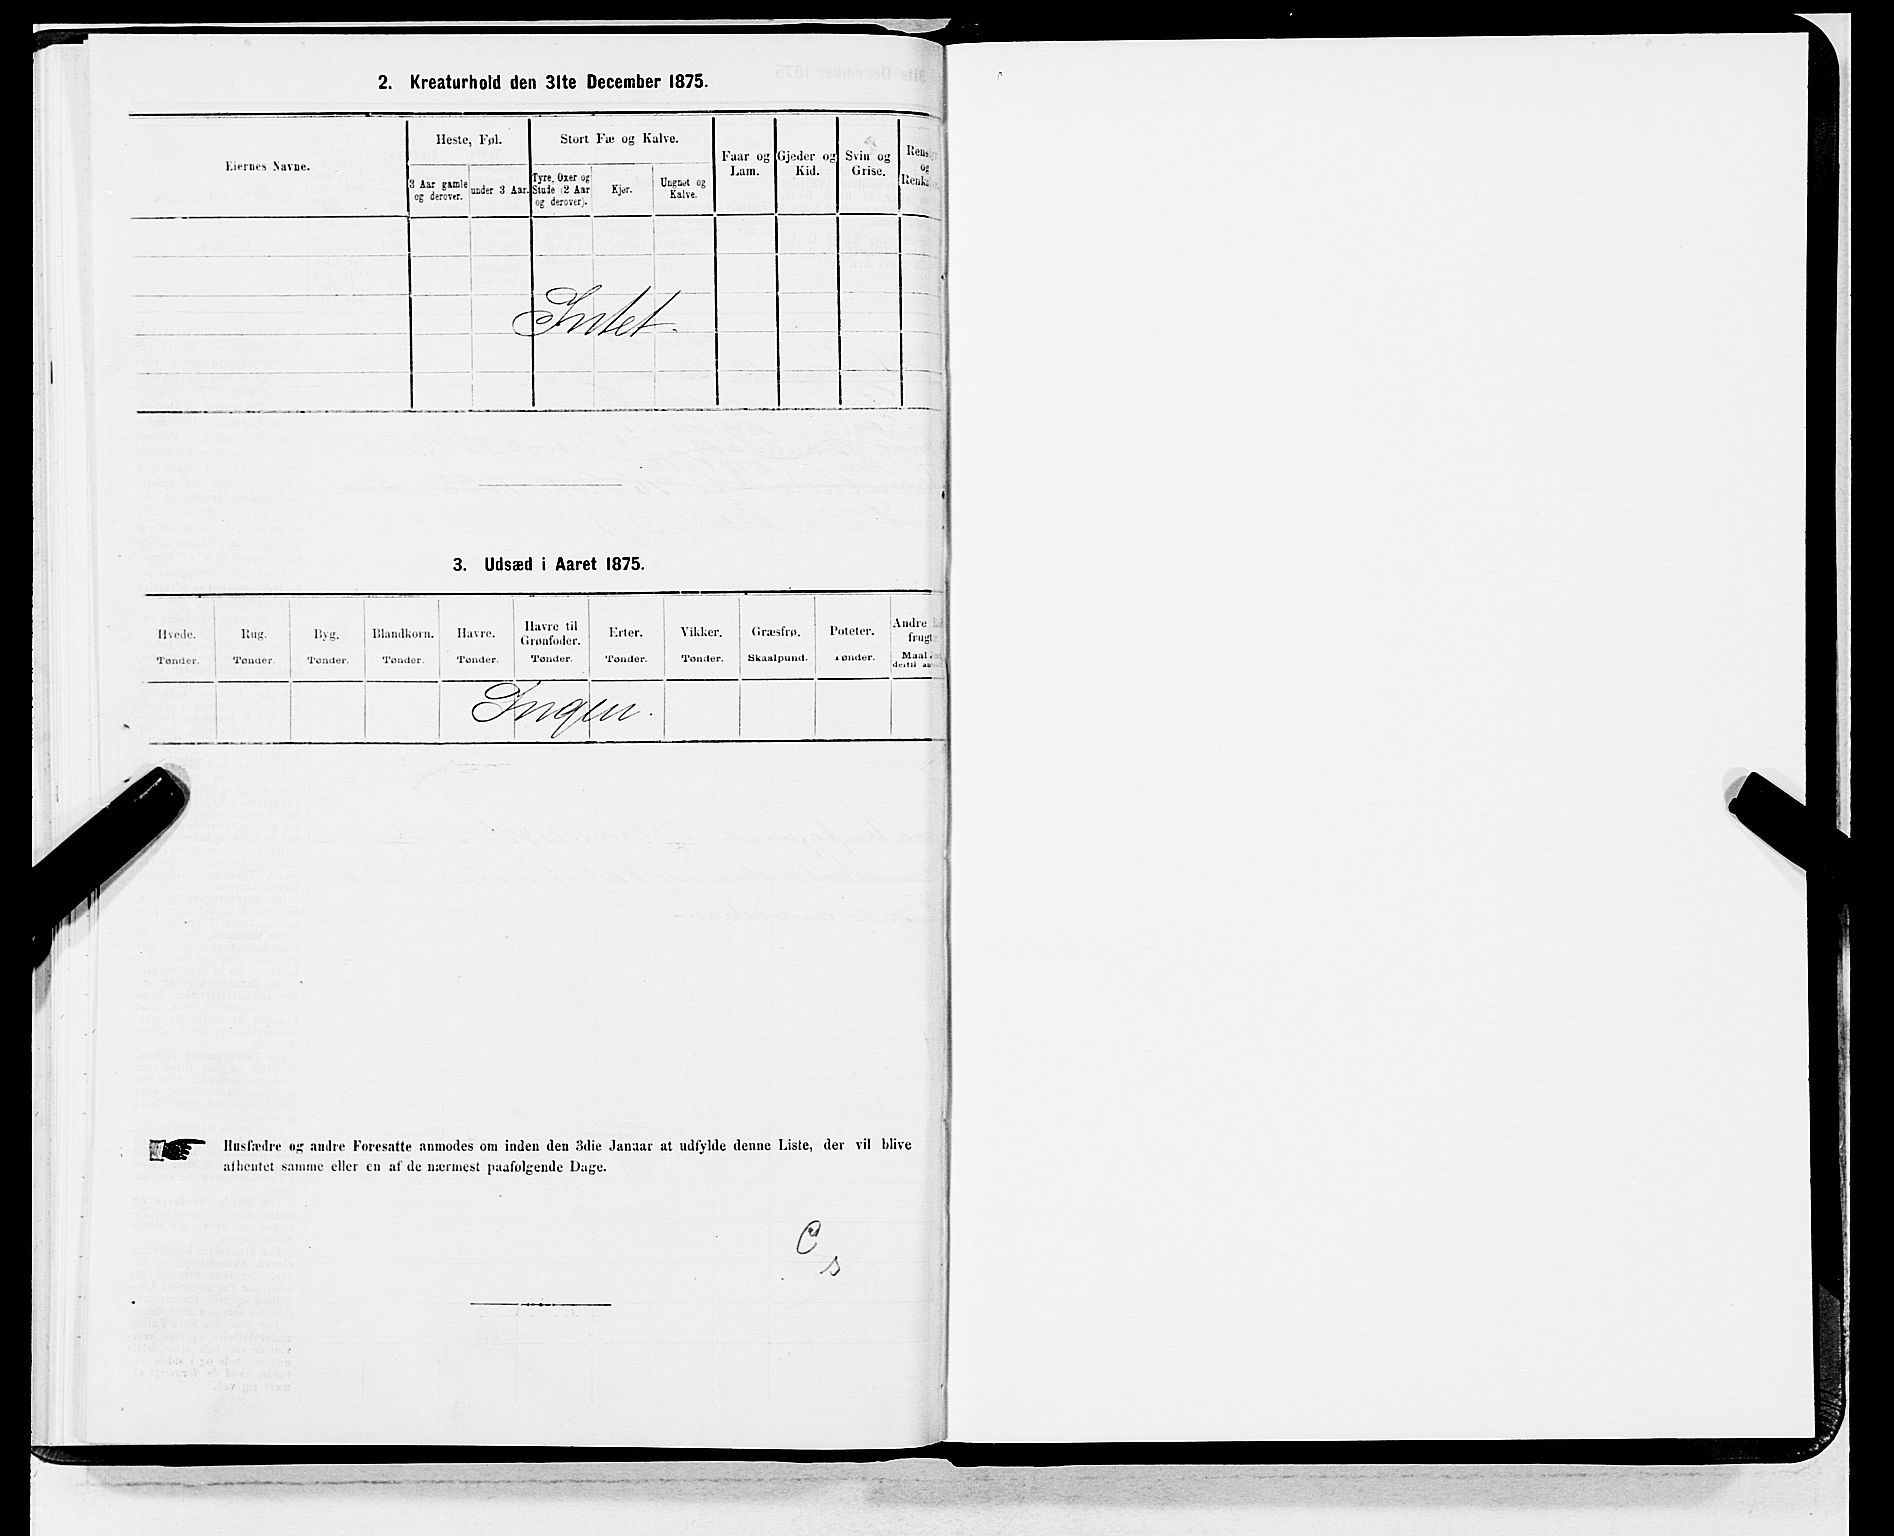 2. Kreaturhold den 31te December 1875.
Eiernes Navne.
Heste, Føl.
3 Aar gamle og derover.
under 3 Aar.
Stort Fæ og Kalve.
Tyre, Oxer og Stude (2 Aar og derover).
Kjør.
Ungnøt og Kalve.
Faar og Lam.
Gjeder og Kid.
Svin og Grise.
og
Intet.
3. Udsæd i Aaret 1875.
Hvede. Tønder.
Rug. Tønder.
Byg. Tønder.
Blandkorn. Tønder.
Havre. Tønder.
Havre til Grønfoder. Tønder.
Erter. Tønder.
Vikker. Tønder.
Græsfrø. Skaalpund.
Poteter. Tønder.
Andre
Maal
Ingen.
Husfædre og andre Foresatte anmodes om inden den 3die Januar at udfylde denne Liste, der vil blive
afhentet samme eller en af de nærmest paafølgende Dage.
C
s